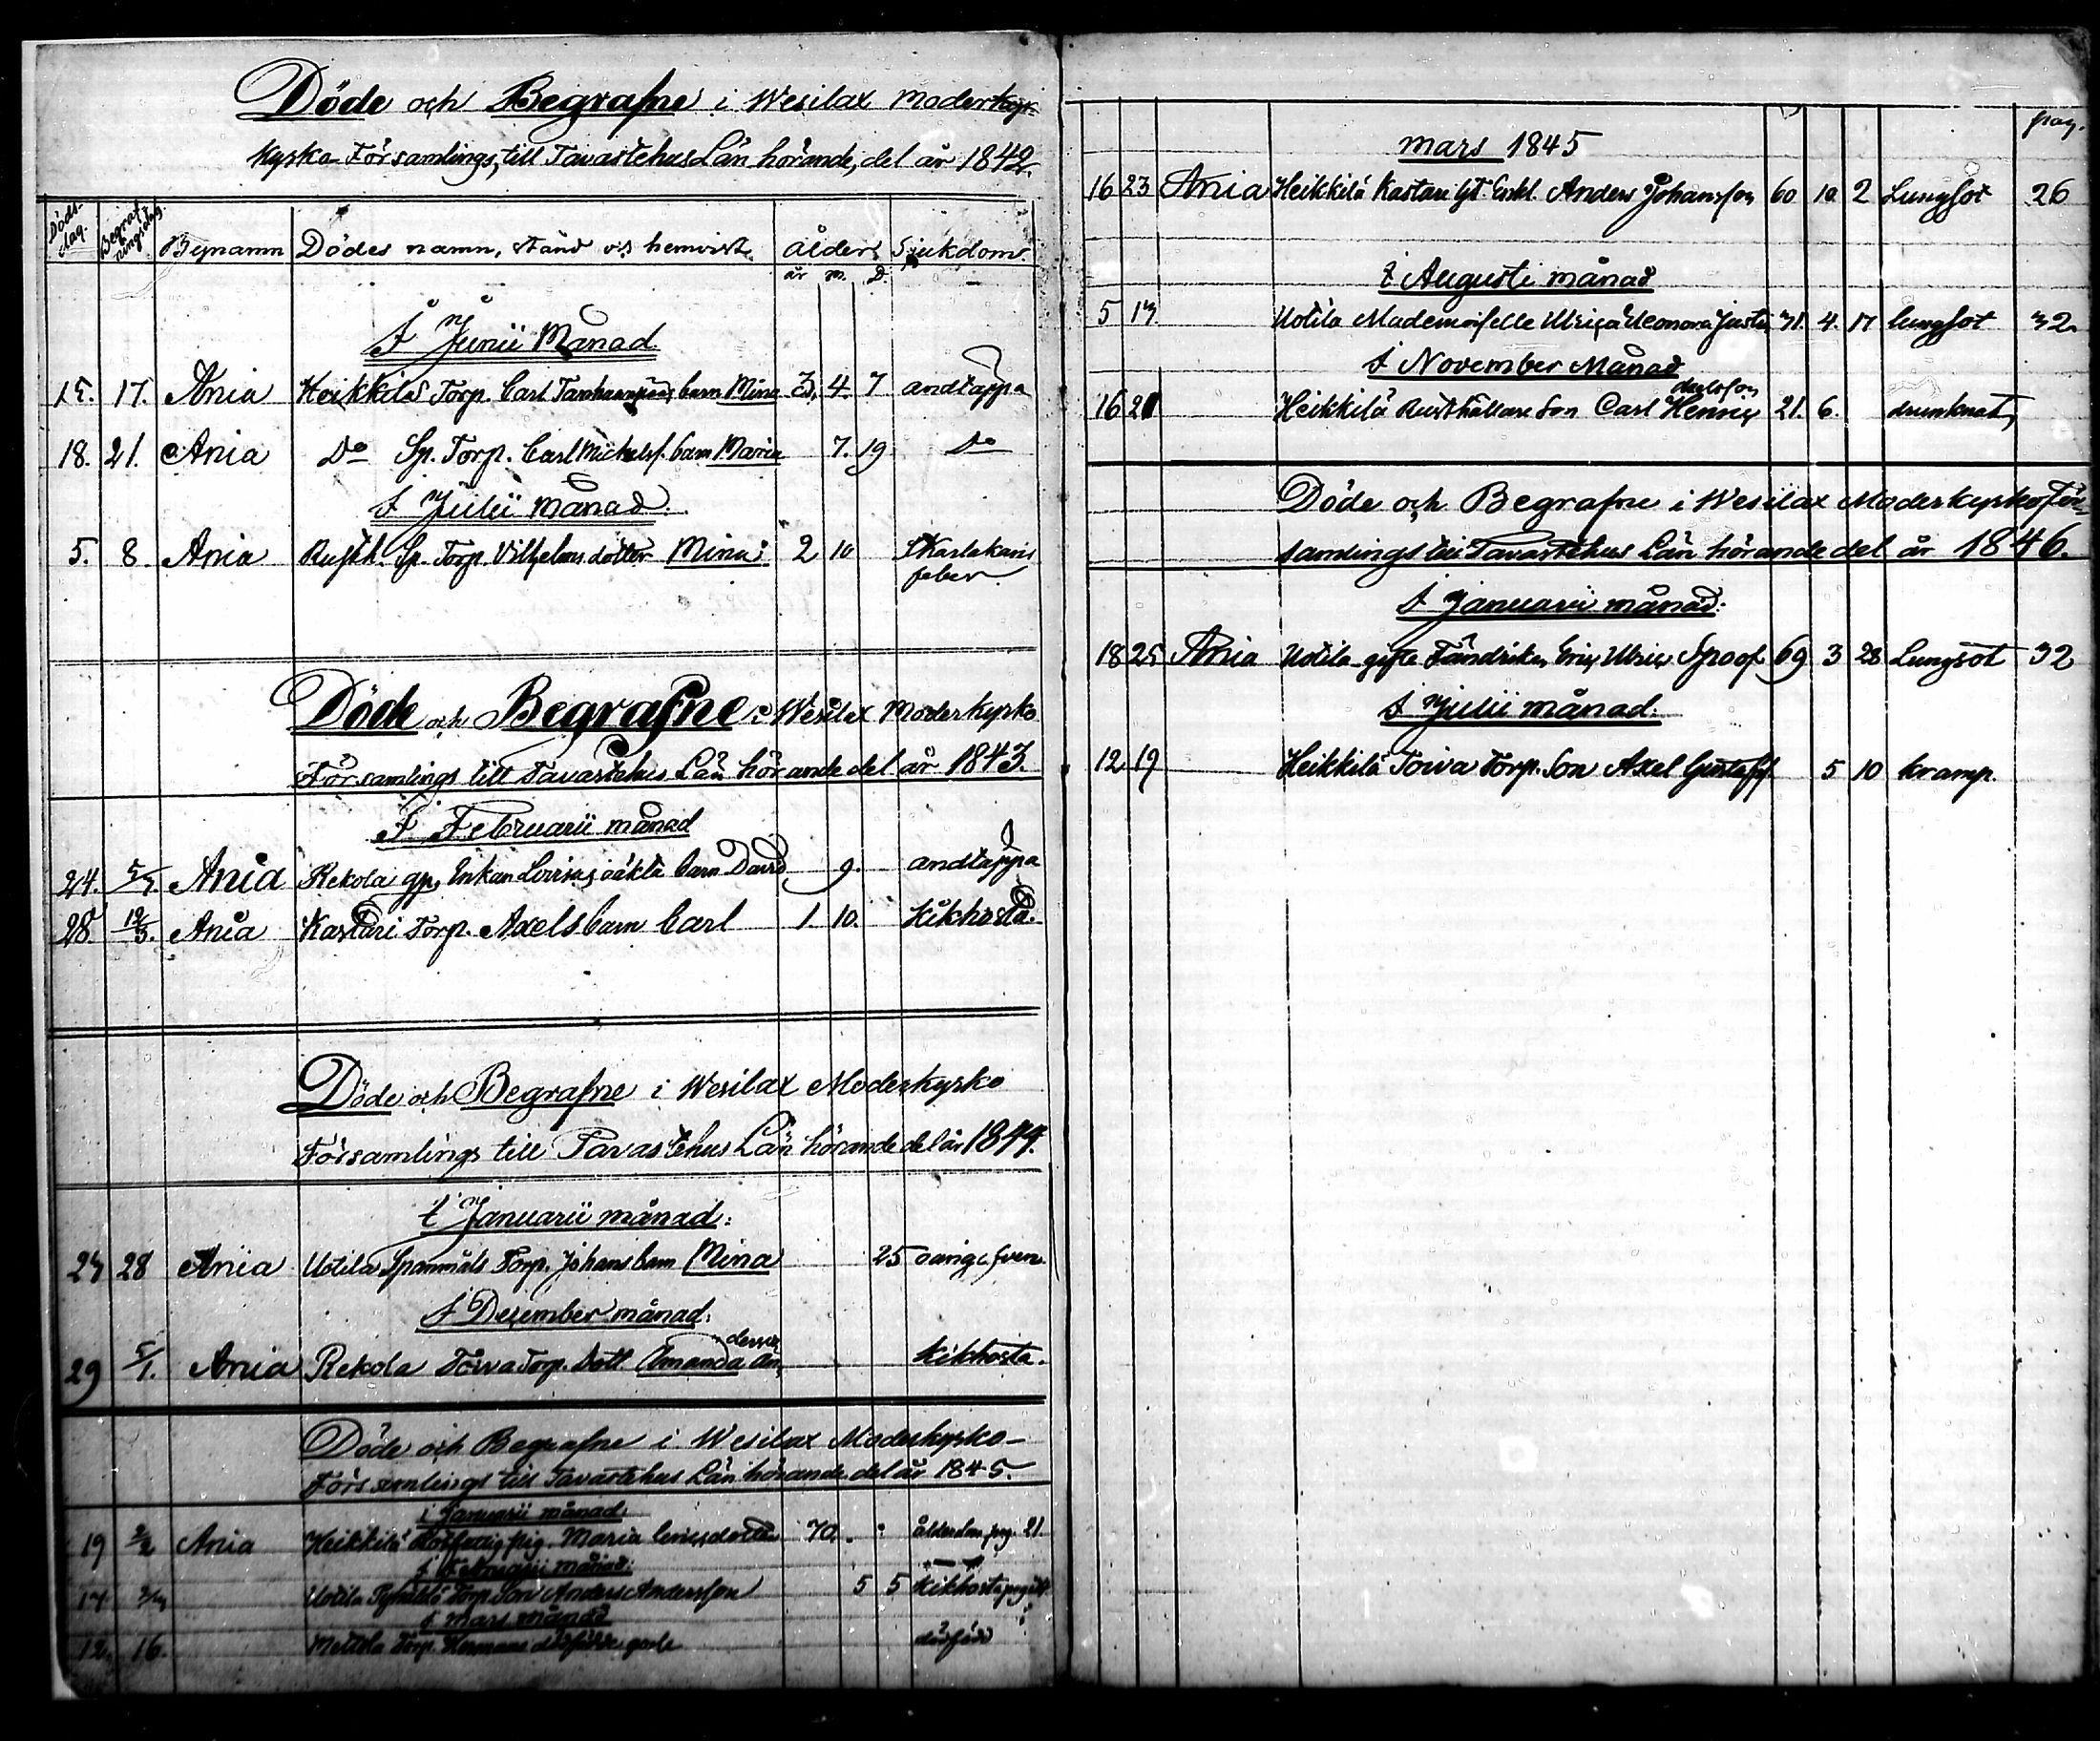 Döde och Begrafne i Wesilax Moderkyr-
kyrko Församlings, till Tavastehus Län hörande, del år 1842.
Döds-dag. Begrafningsdag. Bynamn Dödes namn, stånd och hemvist ålder Sjukdom.
år m. D.
I Junii Månad
15. 17. Ania Heikkilä Torp. Carl barn Mina 3. 4. 7 andtäppa
18. 21. Ania Do Sp. Torp. Carl Michelss. barn Maria 7. 19 Do
I Julii månad.
5. 8. Ania Rusth. Sp. Torp. Vilhelms dotter Mina 2 10 Skarlakans
feber
Döde och Begrafne i Wesilax Moderkyrko
Församlings till Tavastehus Län hörande del år 1843.
I Februarii månad
24. 5/3. Ania Rekola Enkan Lovisas oäkta barn David 9. andtäppa
28. 12/3. Ania Kastari Torp. Axels barn Carl 1. 10. Kikhosta.
Döde och Begrafne i Wesilax Moderkyrko
Församlings till Tavastehus Län hörande del år 1844.
i Januarii månad:
23 28 Ania Uotila Spanmåls Torp. Johans barn Mina 25
I December månad:
dersdr
29 5/1. Ania Rekola Torp. Dott. Amanda An- kikhosta.
Döde och Begrafne i Wesilax Moderkyrko-
Församlings till Tavastehus Län hörande del år 1845.
i Januarii månad.
19 2/2 Ania Heikkilä pig. Maria 70. ålderdom pag. 21
I Februarii månad:
Uotila Torp. Son Anders Andersson 5 5 Kikhosta
I Mars månad
12. 16. Mettola Torp. Hermans dödfödde gosse dödfödd
pag.
Mars 1845
16 23 Ania Heikkilä Kastari Enkl. Anders Johansson 60 10 2 Lungsot 26
i Augusti månad
5 13 Uotila Mademoiselle Ulrica Eleonora 31. 4. 17 lungsot 32
I November Månad
carlsson
16 21 Heikkilä Rusthållare Son Carl Henric 21. 6. drunknat
Döde och Begrafne i Wesilax Moderkyrko För-
samlings till Tavastehus Län hörande del år 1846.
I Januarii månad:
18 25 Ania Uotila gifte Fändriken Eric Ulric Spoof 69 3 28 Lungsot 32
I Julii månad:
12 19 Heikkilä Toiva Torp. Son Axel Gustafss. 5 10 kramp.